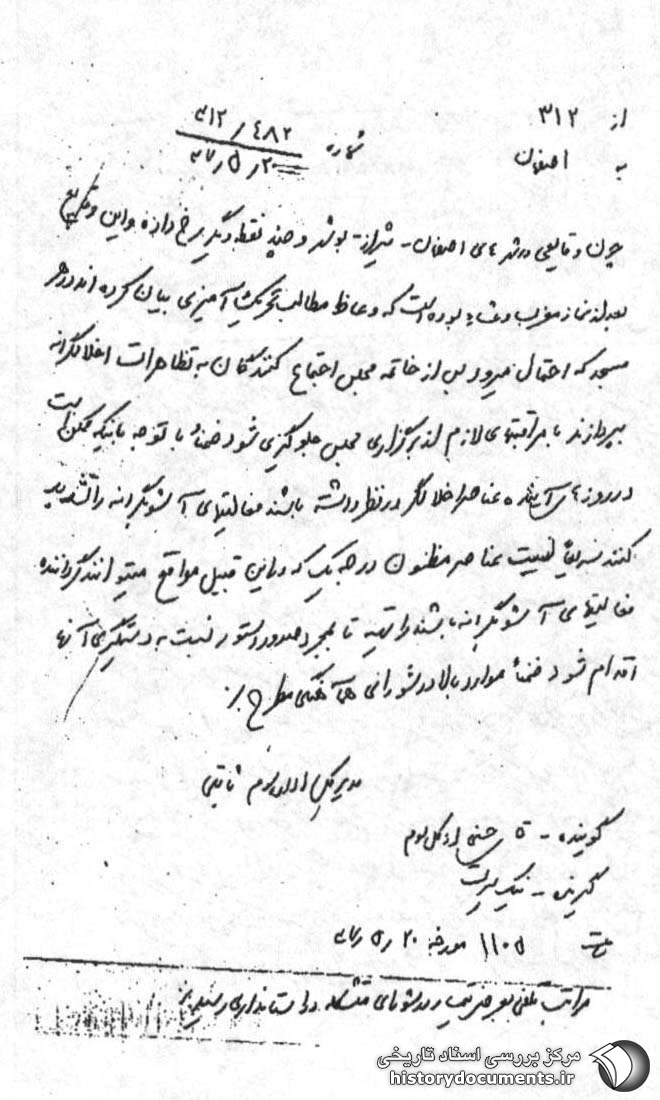 از ۳۱۲
به اصفهان
شماره ۳۱۲/۴۸۲
۳۷/۵/۲۰
چون وقایعی در شهرهای اصفهان - شیراز - بوشهر و چند نقطه دیگر رخ داده و این وقایع
بعد از نماز مغرب و عشاء بوده است که وعاظ مطالب تحریک آمیزی بیان کرده اند در هر
مسجد که احتمال میرود پس از خاتمه مجلس اجتماع کنندگان به تظاهرات اخلالگرانه
بپردازند با مراقبتهای لازم از برگزاری مجلس جلوگیری شود ضمناً با توجه باینکه ممکن است
در روزهای آینده عناصر اخلالگر در نظر داشته باشند فعالیتهای آشوبگرانه را تشدید
کنند سریعاً لیست عناصر مظنون در هر یک که در این قبیل مواقع میتوانند گرداننده
فعالیتهای آشوبگرانه باشند را تهیه تا بمجرد صدور دستور نسبت به دستگیری آنها
اقدام شود ضمناً موارد بالا در شورای هماهنگی مطرح
مدیرکل اداره سوم ثابتی
گوینده - حسنی اداره کل سوم
گیرنده - نیک
ساعت ۱۱۰۵ مورخه ۳۷/۵/۲۰
مراتب تلفنی در شورای متشکله در استانداری رسید
مرکز بررسی اسناد تاریخی
historydocuments.ir